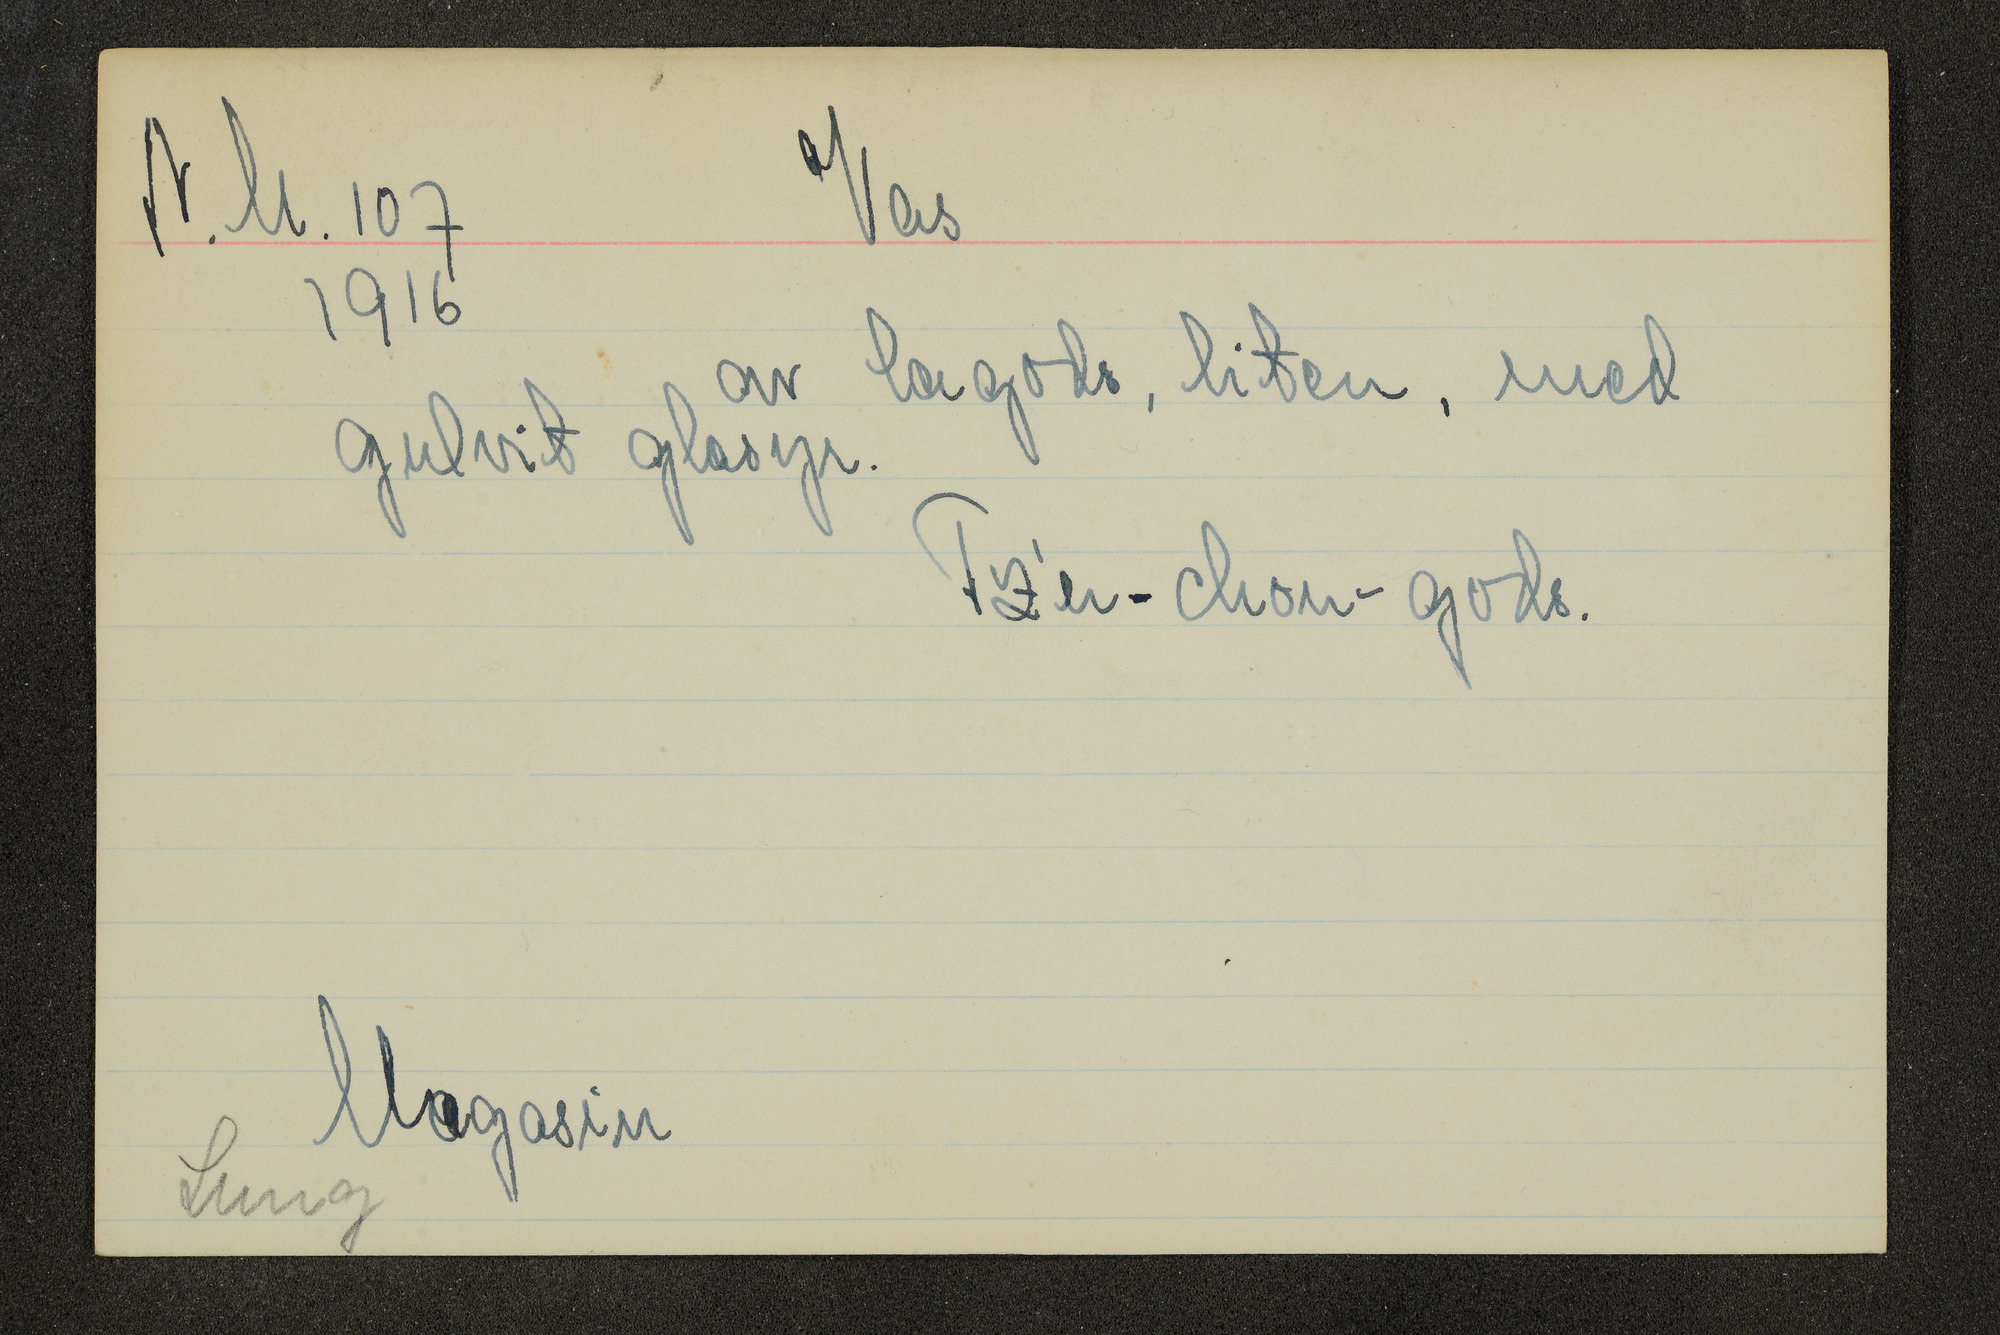 N.M. 107 Vas
1916
av lagods, liten, med
gulvit glasyr.
Tz'eu-chou-gods.
Magasin
Sung